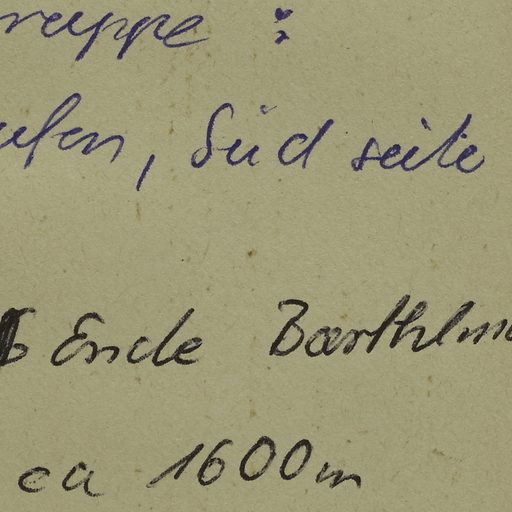 ruppe :
ufen, Südseite
b Ende Barthlmä
ca 1600m